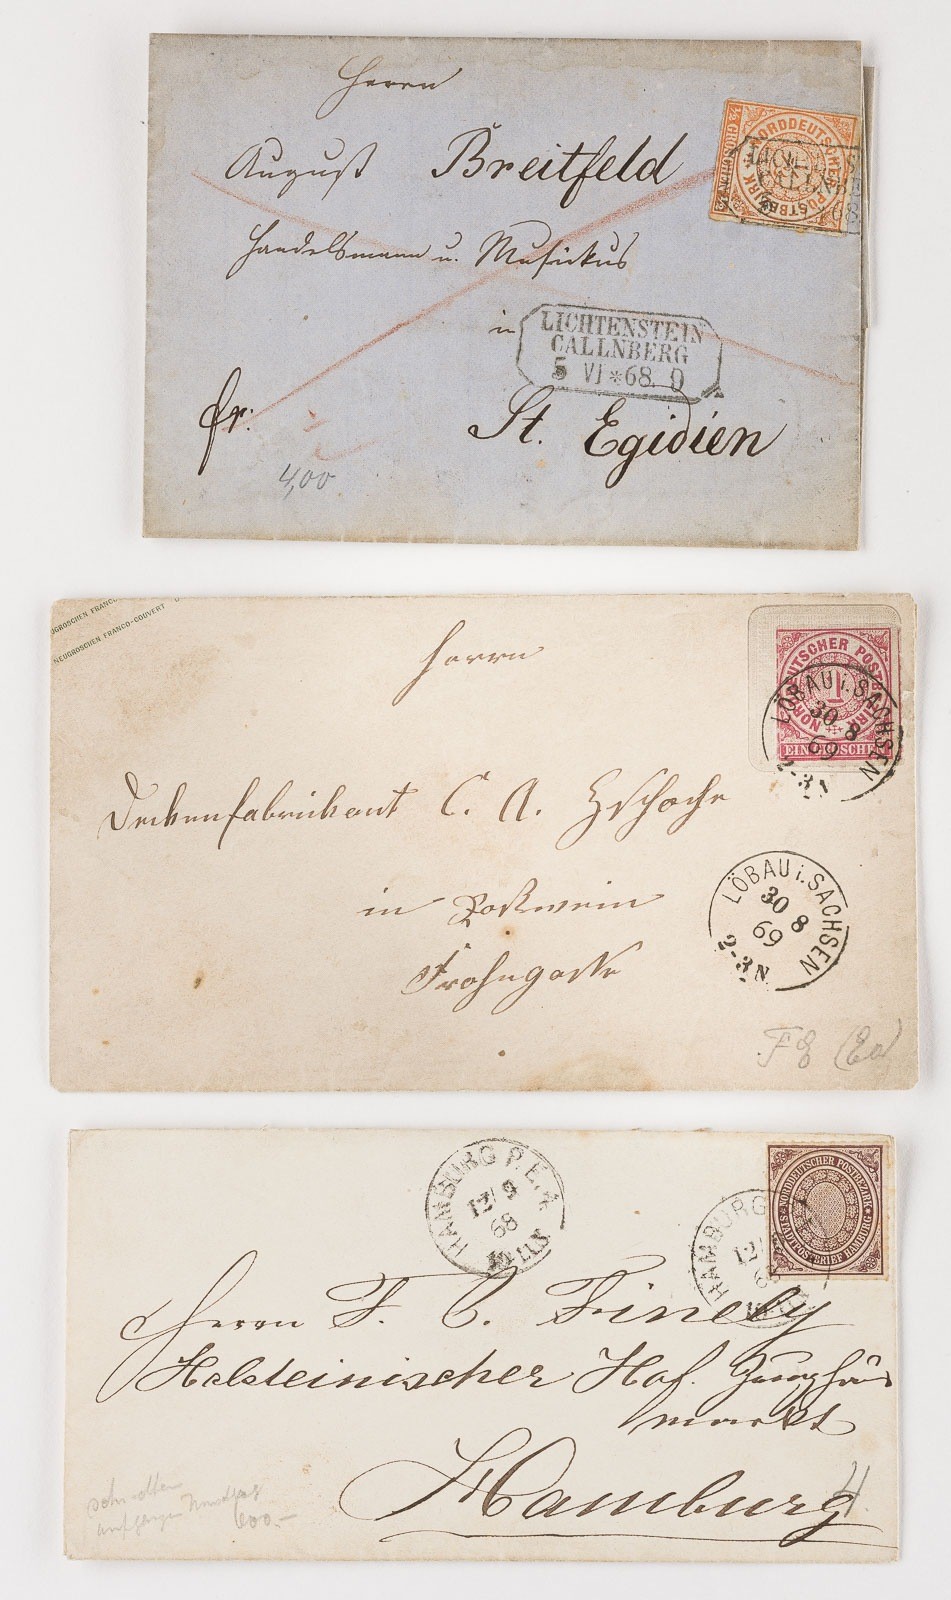 Herrn
August Breitfeld
Handelsmann u. Musikus
in
St. Egidien
fr:
4,00
NORDDEUTSCHER POSTBEZIRK
1/2 GROSCHEN 1/2
LICHTENSTEIN
CALLNBERG
5 VI *68. 9
UGROSCHEN FRANCO
NEUGROSCHEN FRANCO-COUVERT
NORDDEUTSCHER POSTBEZIRK
1
EIN GROSCHEN
LÖBAU i. SACHSEN
30 8
69
2-3 N
Herrn
Deckenfabrikant C. A. Zschoche
in Roßwein
Frohngasse
LÖBAU i. SACHSEN
30 8
69
2-3 N.
HAMBURG P.E. 1.
12/9
68
NORDDEUTSCHER POSTBEZIRK
STADTPOSTBRIEF HAMBURG
HAMBURG
12/
Herrn F. C. Finely
Holsteinischer Hof. Gänse
markt
Hamburg
600.-